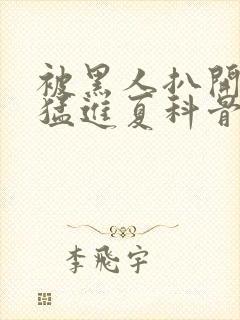 被黑人扒開
猛進夏科骨
李飛宇